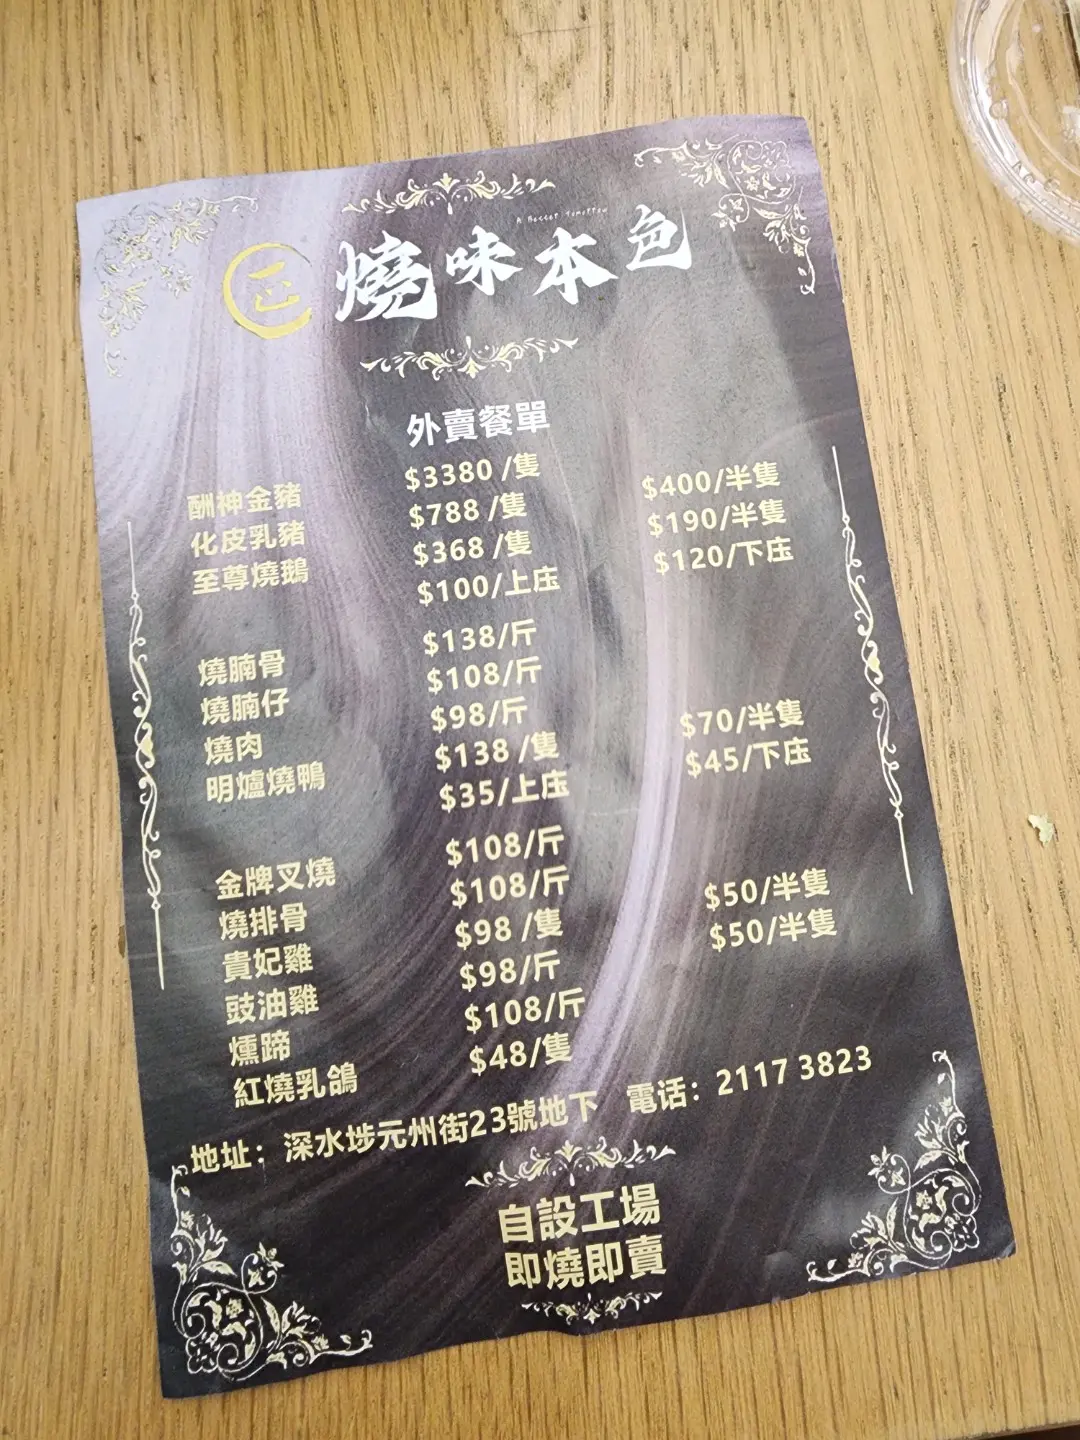 A Better Tomorrow
正 燒味本色
外賣餐單
酬神金豬 $3380 /隻
化皮乳豬 $788 /隻 $400/半隻
至尊燒鵝 $368 /隻 $190/半隻
$100/上庄 $120/下庄
燒腩骨 $138/斤
燒腩仔 $108/斤
燒肉 $98/斤
明爐燒鴨 $138 /隻 $70/半隻
$35/上庄 $45/下庄
金牌叉燒 $108/斤
燒排骨 $108/斤
貴妃雞 $98 /隻 $50/半隻
豉油雞 $98/斤 $50/半隻
燻蹄 $108/斤
紅燒乳鴿 $48/隻
地址：深水埗元州街23號地下 電话：2117 3823
自設工場
即燒即賣